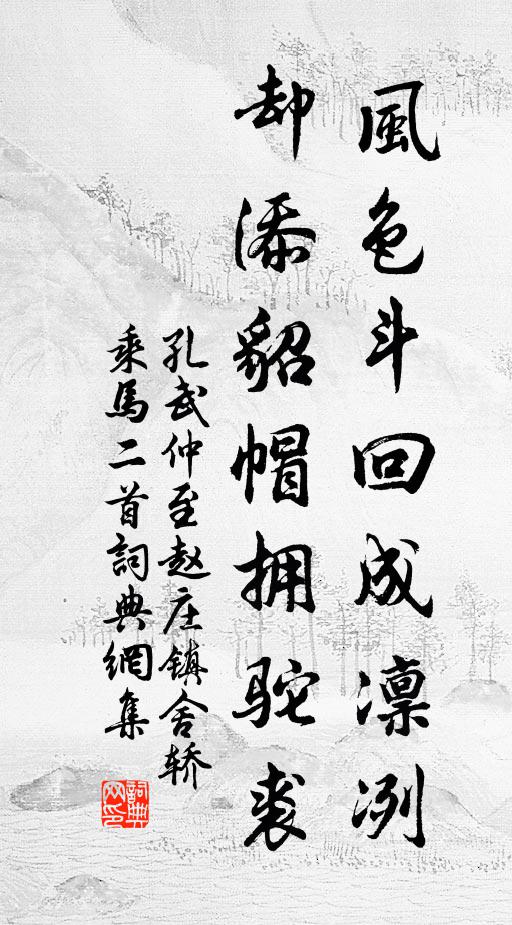 風色斗回成凛冽
却添貂帽拥駝裘
孔武仲至赵庄镇舍轿
乘馬二首詞典網集
詞典网印